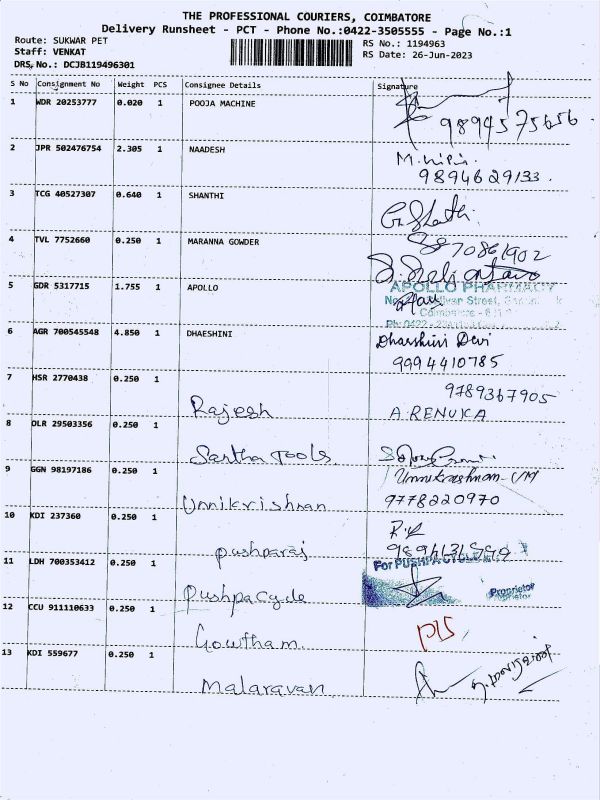 THE PROFESSIONAL COURIERS, COIMBATORE
Delivery Runsheet - PCT - Phone No.:0422-3505555 - Page No.:1
Route: SUKWAR PET
Staff: VENKAT
DRS, No.: DCJB119496301
RS No.: 1194963
RS Date: 26-Jun-2023
S No Consignment No Weight PCS Consignee Details Signature
1 WDR 20253777 0.020 1 POOJA MACHINE
9894575656
2 JPR 502476754 2.305 1 NAADESH
9894629133
3 TCG 40527307 0.640 1 SHANTHI
4 TVL 7752660 0.250 1 MARANNA GOWDER
5 GDR 5317715 1.755 1 APOLLO
APOLLO PHARMACY
Street,
Coimbatore -
6 AGR 700545548 4.850 1 DHAESHINI
Dharshini Devi
9994410785
7 HSR 2770438 0.250 1 Rajesh
9789367905
A. RENUKA
8 OLR 29503356 0.250 1 Sastha Tools
9 GGN 98197186 0.250 1 Unnikrishnan
Unnikrishnan
9778220970
10 KDI 237360 0.250 1 pushparaj
11 LDH 700353412 0.250 1 Pushpa Cycle
For PUSHPA CYCLE
Proprietor
12 CCU 911110633 0.250 1 Gowtham
13 KDI 559677 0.250 1 Malaravan